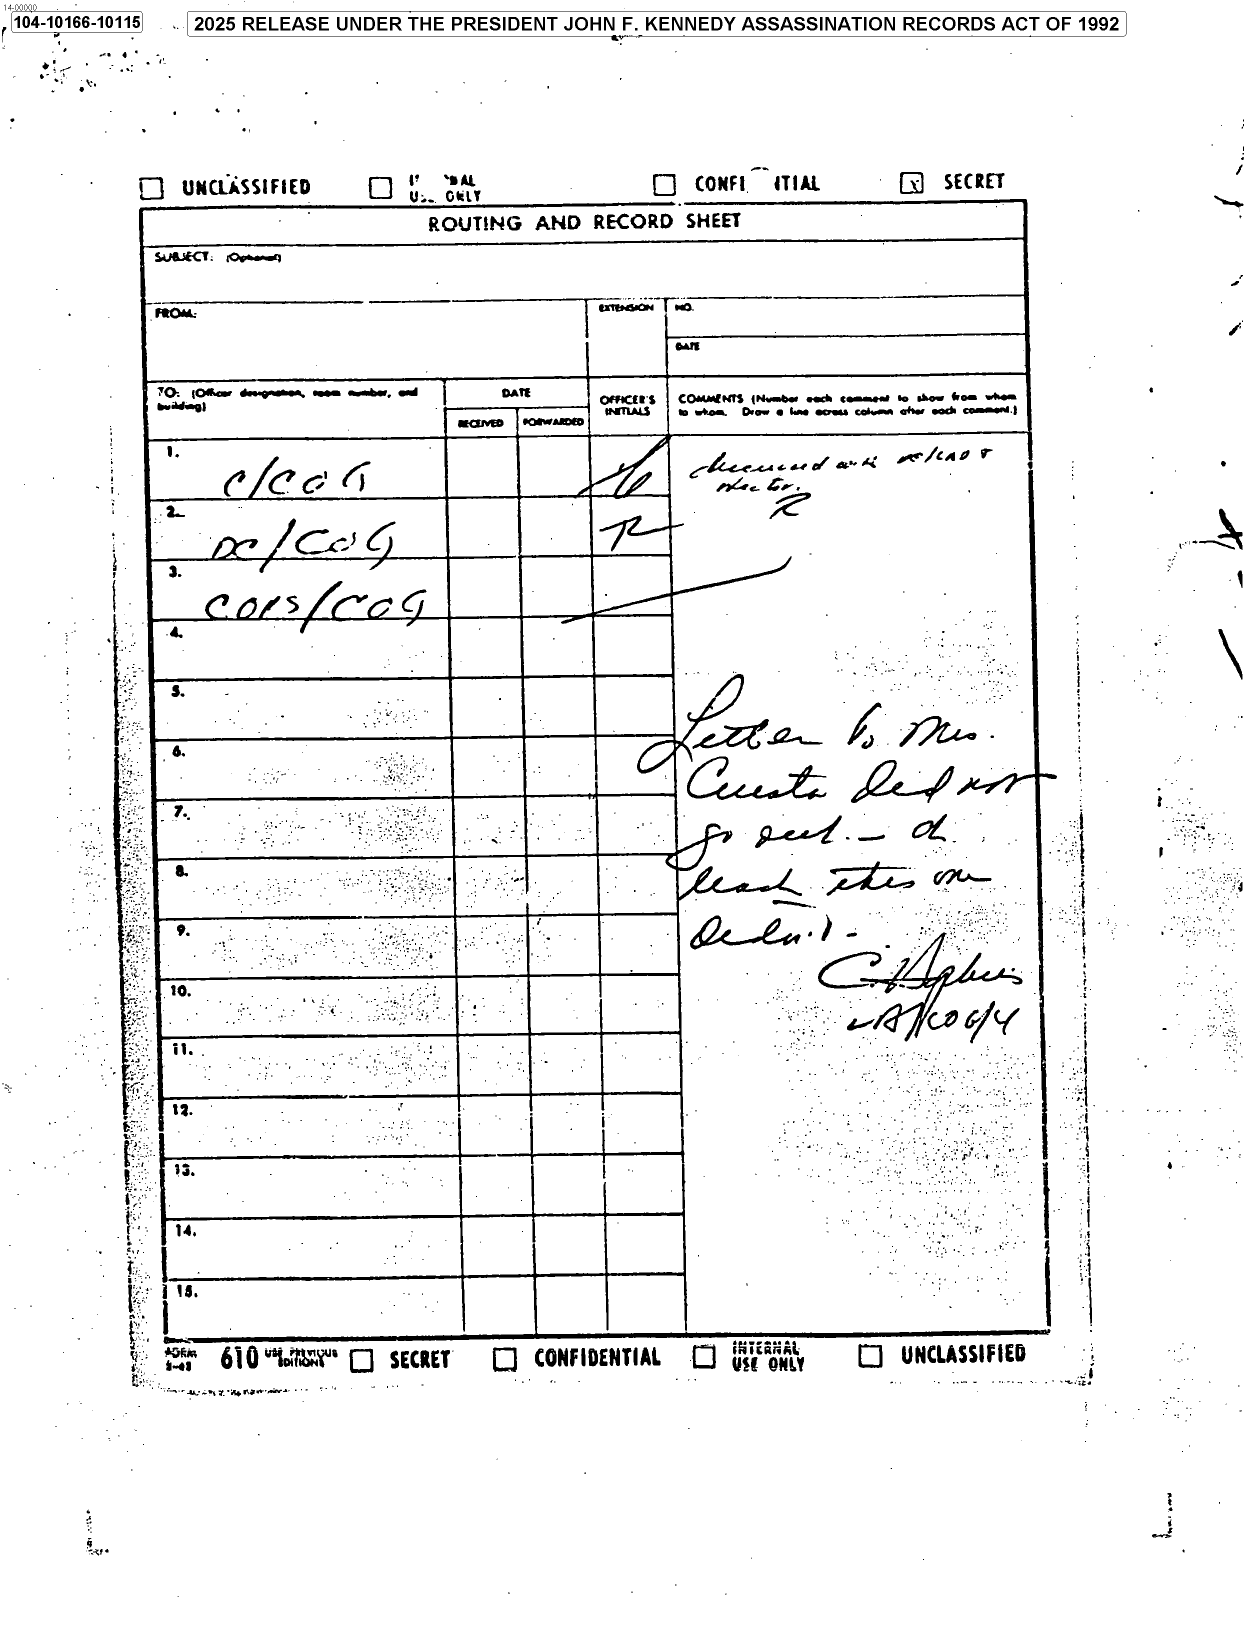 14-00000
104-10166-10115
2025 RELEASE UNDER THE PRESIDENT JOHN F. KENNEDY ASSASSINATION RECORDS ACT OF 1992
UNCLASSIFIED CONFI ITIAL x SECRET
USE ONLY
ROUTING AND RECORD SHEET
SUBJECT: (Optional)
FROM:
EXTENSION
NO.
DATE
TO: (Officer designation, room number, and building)
DATE
RECEIVED
FORWARDED
OFFICER'S INITIALS
COMMENTS (Number each comment to show from whom
to whom. Draw a line across column after each comment.)
1.
C/COG
discussed with
R
2.
DC/COG
R
3.
COPS/COG
4.
5.
6.
Letter to Mrs.
Cuesta did not
7.
go out. -
8.
least this one
9.
didn't -
10.
11.
12.
13.
14.
15.
FORM 610 USE PREVIOUS EDITIONS
SECRET
CONFIDENTIAL
INTERNAL USE ONLY
UNCLASSIFIED